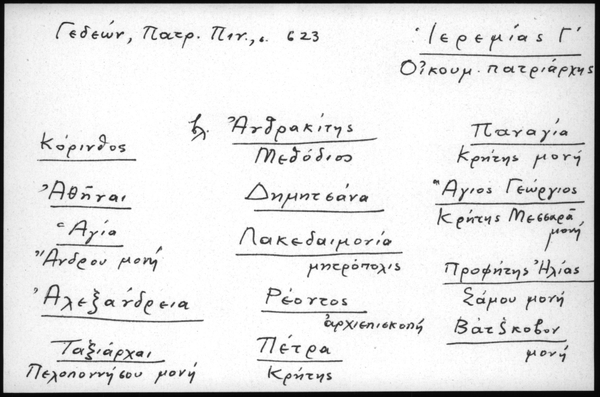 Γεδεών, Πατρ. Πιν., σ. 623
Ἱερεμίας Γ'
Οἰκουμ. πατριάρχης
Κόρινθος
Ἀθῆναι
Ἁγία
Ἄνδρου μονή
Ἀλεξάνδρεια
Ταξιάρχαι
Πελοποννήσου μονή
βλ. Ἀνθρακίτης
Μεθόδιος
Δημητσάνα
Λακεδαιμονία
μητρόπολις
Ρέοντος
ἀρχιεπισκοπή
Πέτρα
Κρήτης
Παναγία
Κρήτης μονή
Ἅγιος Γεώργιος
Κρήτης Μεσσαρᾶ
μονή
Προφήτης Ἠλίας
Σάμου μονή
Βάτσκοβον
μονή